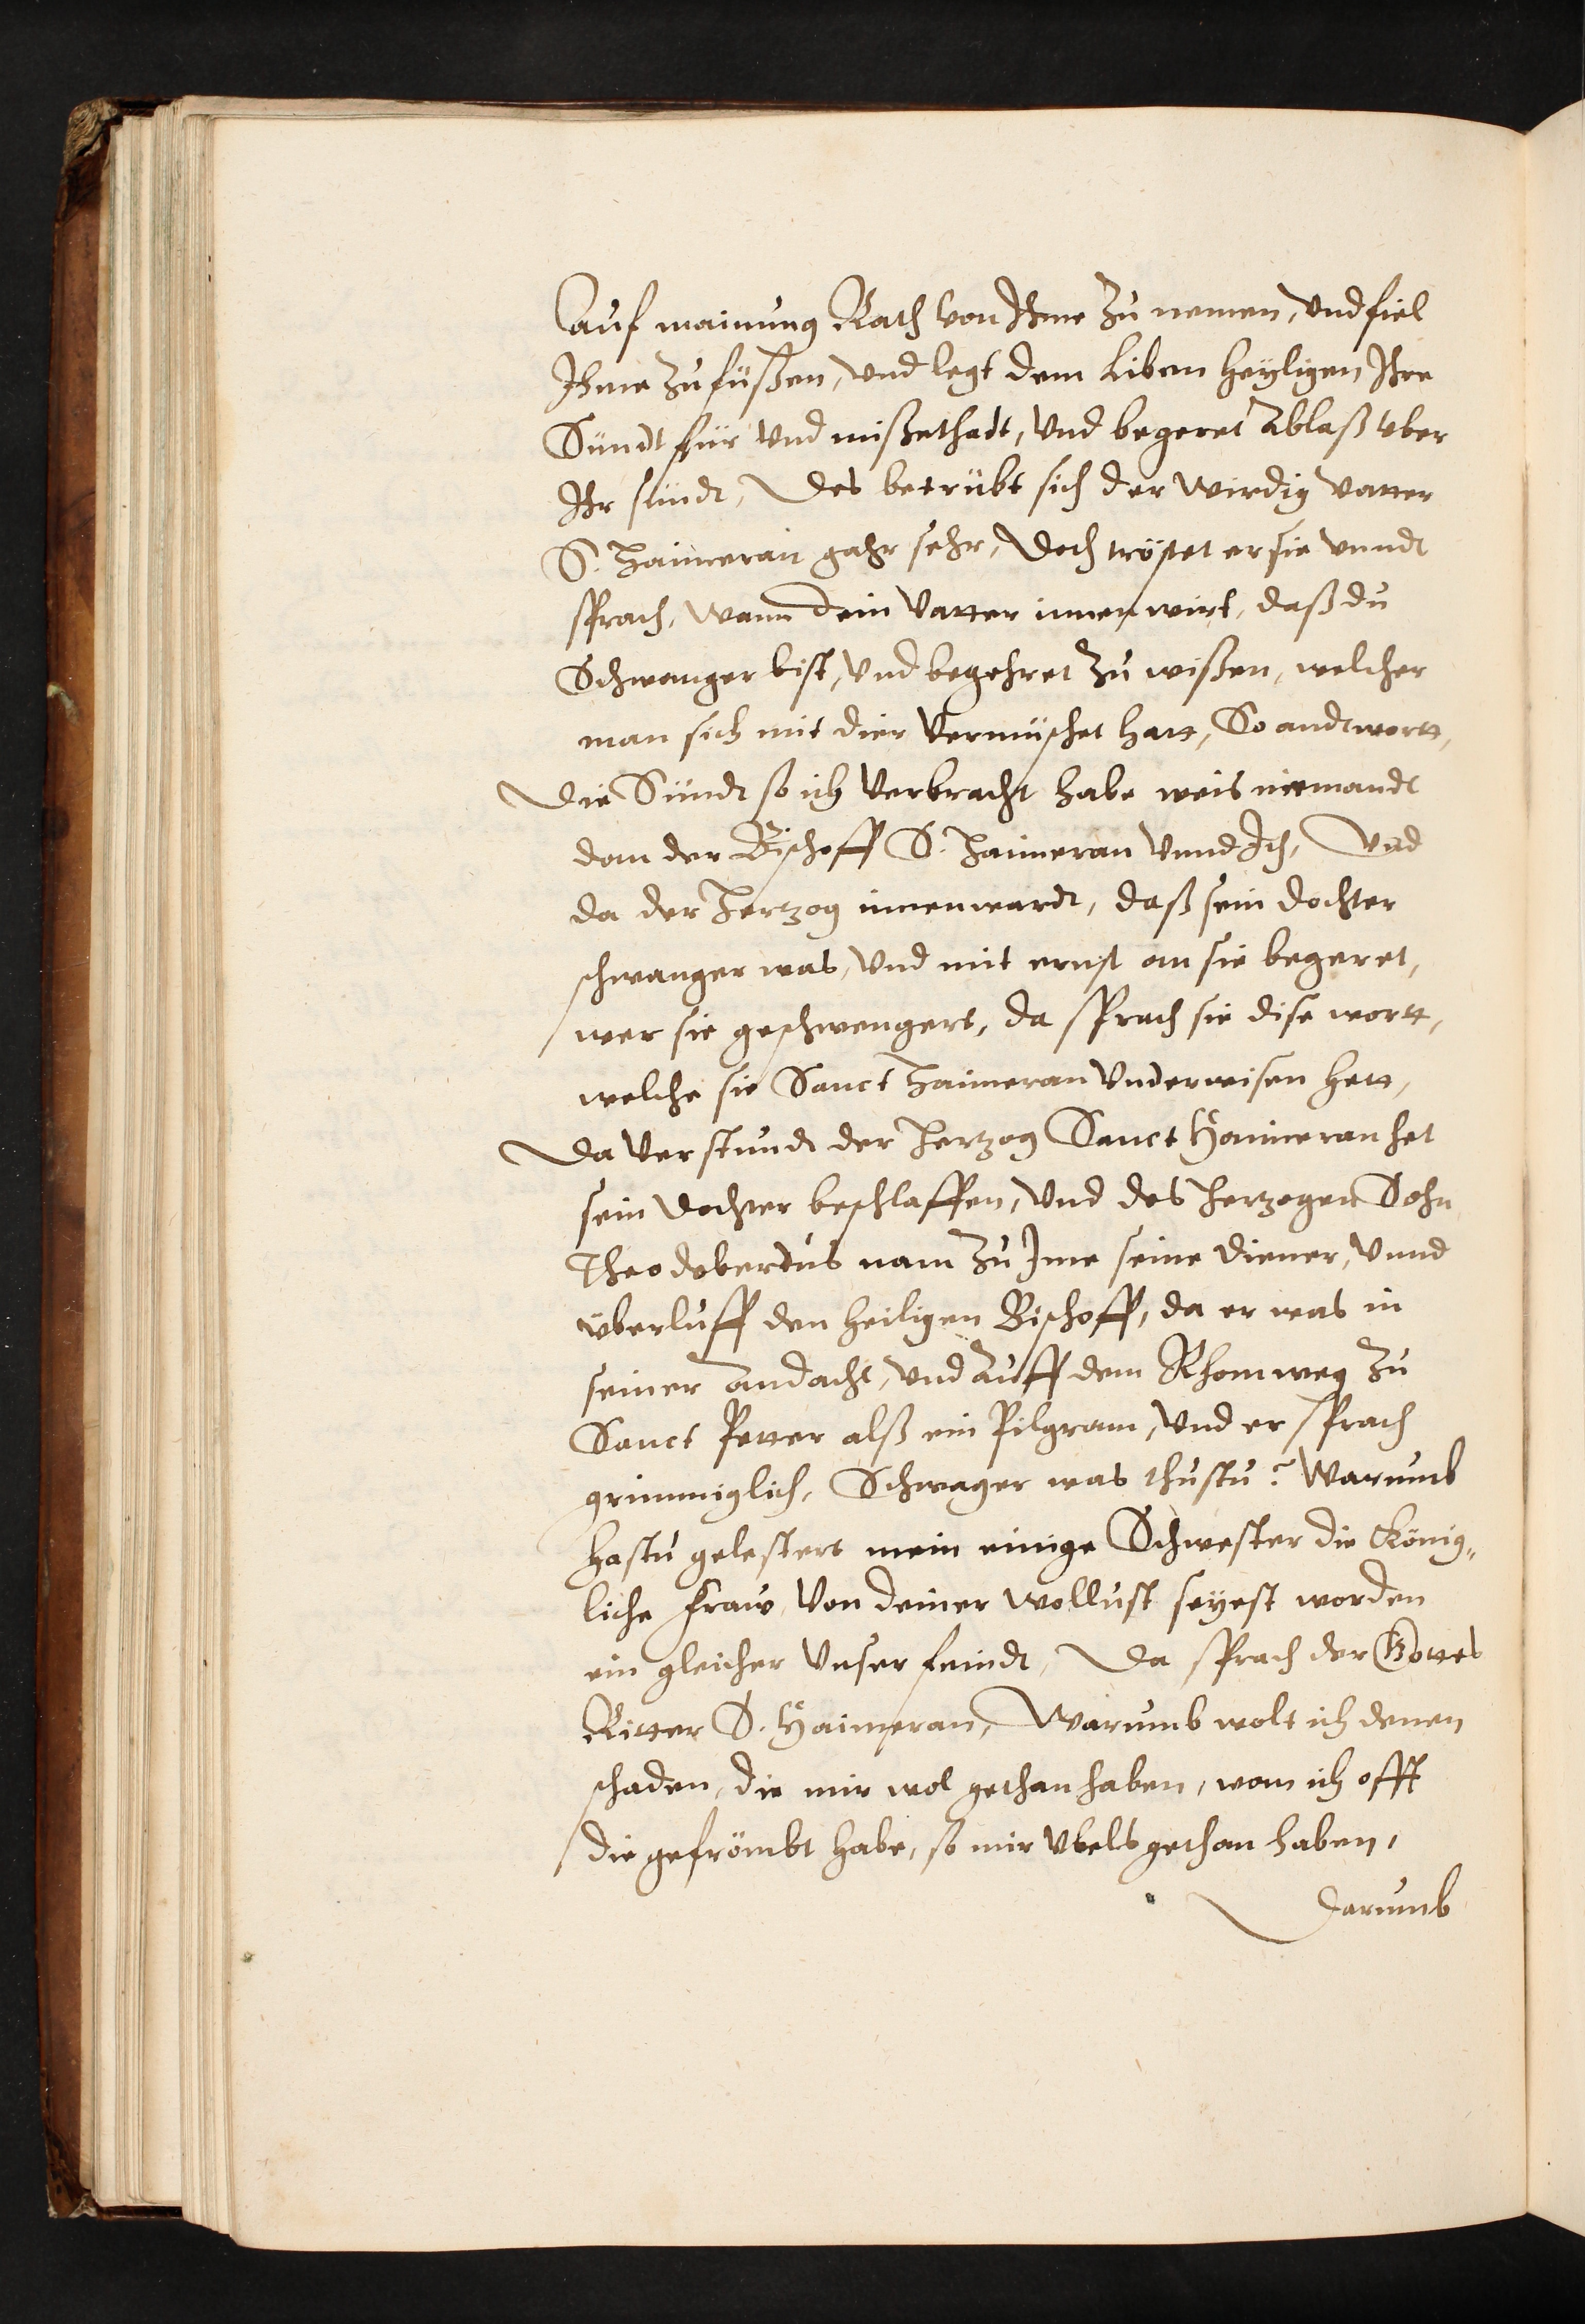 auf mainung Rath von Ihme zu nemen, und fiel
Ihme zu füßen, und legt dem Liben Heyligen Ihre
Sündt für und mißethadt, und begeret Ablaß vber
Ihr sündt, Des betrübt sich der wirdig Vatter
S. Haimeran gahr sehr, Doch tröstet er sie vnndt
sprach, Wann Dein Vatter innen wirt, daß du
Schwanger bist, und begehret zu wißen, welcher
man sich mit dier Vermüschet hatt, So andtwortt,
Die Sündt so ich Verbracht habe weis niemandt
dan der Bischoff S. Haimeran Vnnd Ich, Und
da der Hertzog innenwardt, daß sein dochter
schwanger was, und mit ernst an sie begeret,
wer sie geschwengert, da sprach sie dise wortt,
welche sie Sanct Haimeran Underwisen hett,
Da Verstundt der Hertzog Sanct Haimeran het
sein Dochter beschlaffen, und des Hertzogen Sohn
Theodobertus nam zu Ime seine Diener, Vnnd
überluff den Heiligen Bischoff, da er was in
seiner andacht, und Auff dem Rhomweg zu
Sanct Petter alß ein Pilgram, und er sprach
grimmiglich, Schwager was thustu? Warumb
hastu gelestert mein einige Schwester die König„
liche Fraw, Von deiner Wollust seyest worden
ein gleicher Unser feindt, Da sprach der Gottes
Ritter S. Haimeran, Warumb wolt ich denen
schaden, die mir wol gethan haben, wan ich offt
die gefrömbt habe, so mir Vbels gethan haben,
Darumb